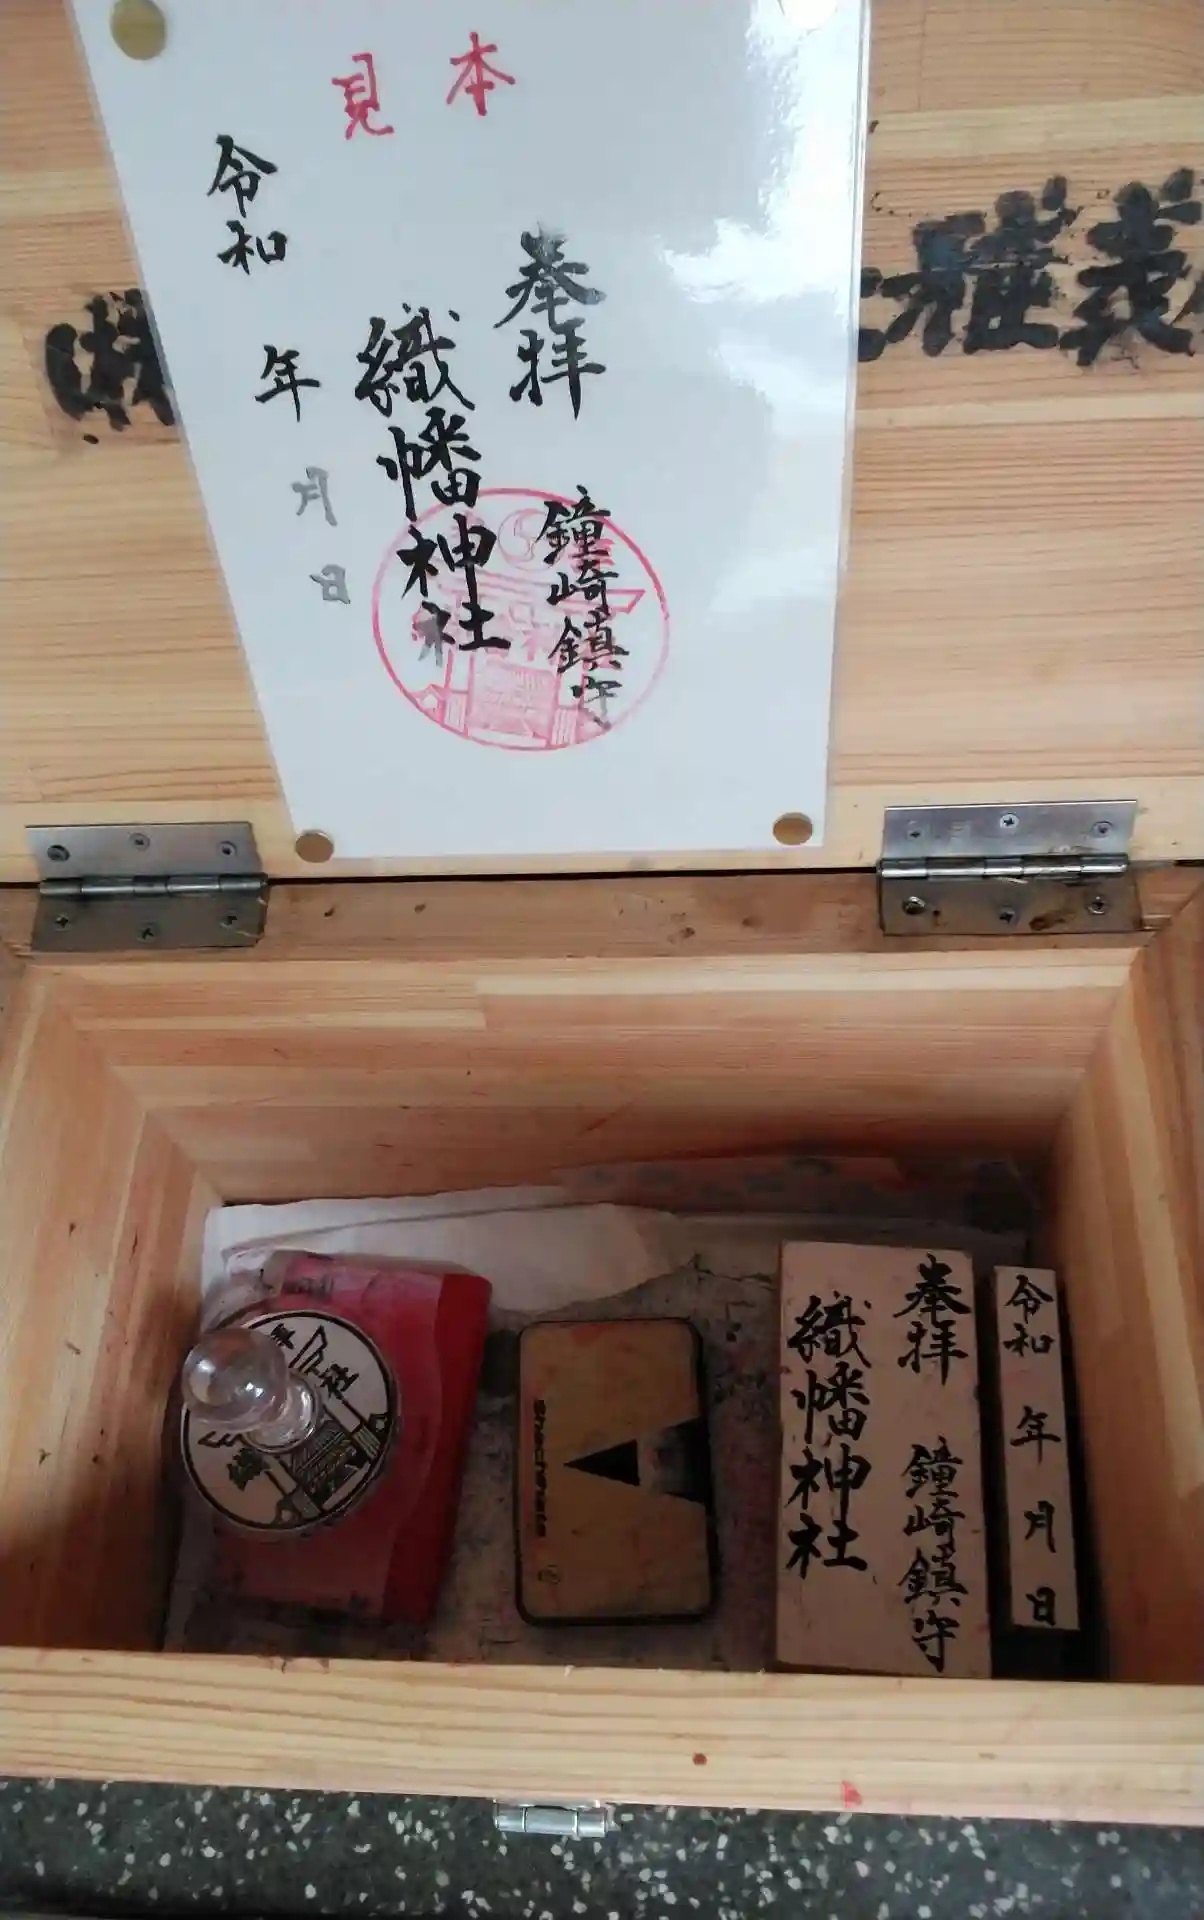 見本
奉拝
鐘崎鎮守
織幡神社
令和 年 月 日
Shachihata
奉拝 鐘崎鎮守
織幡神社
令和 年 月 日